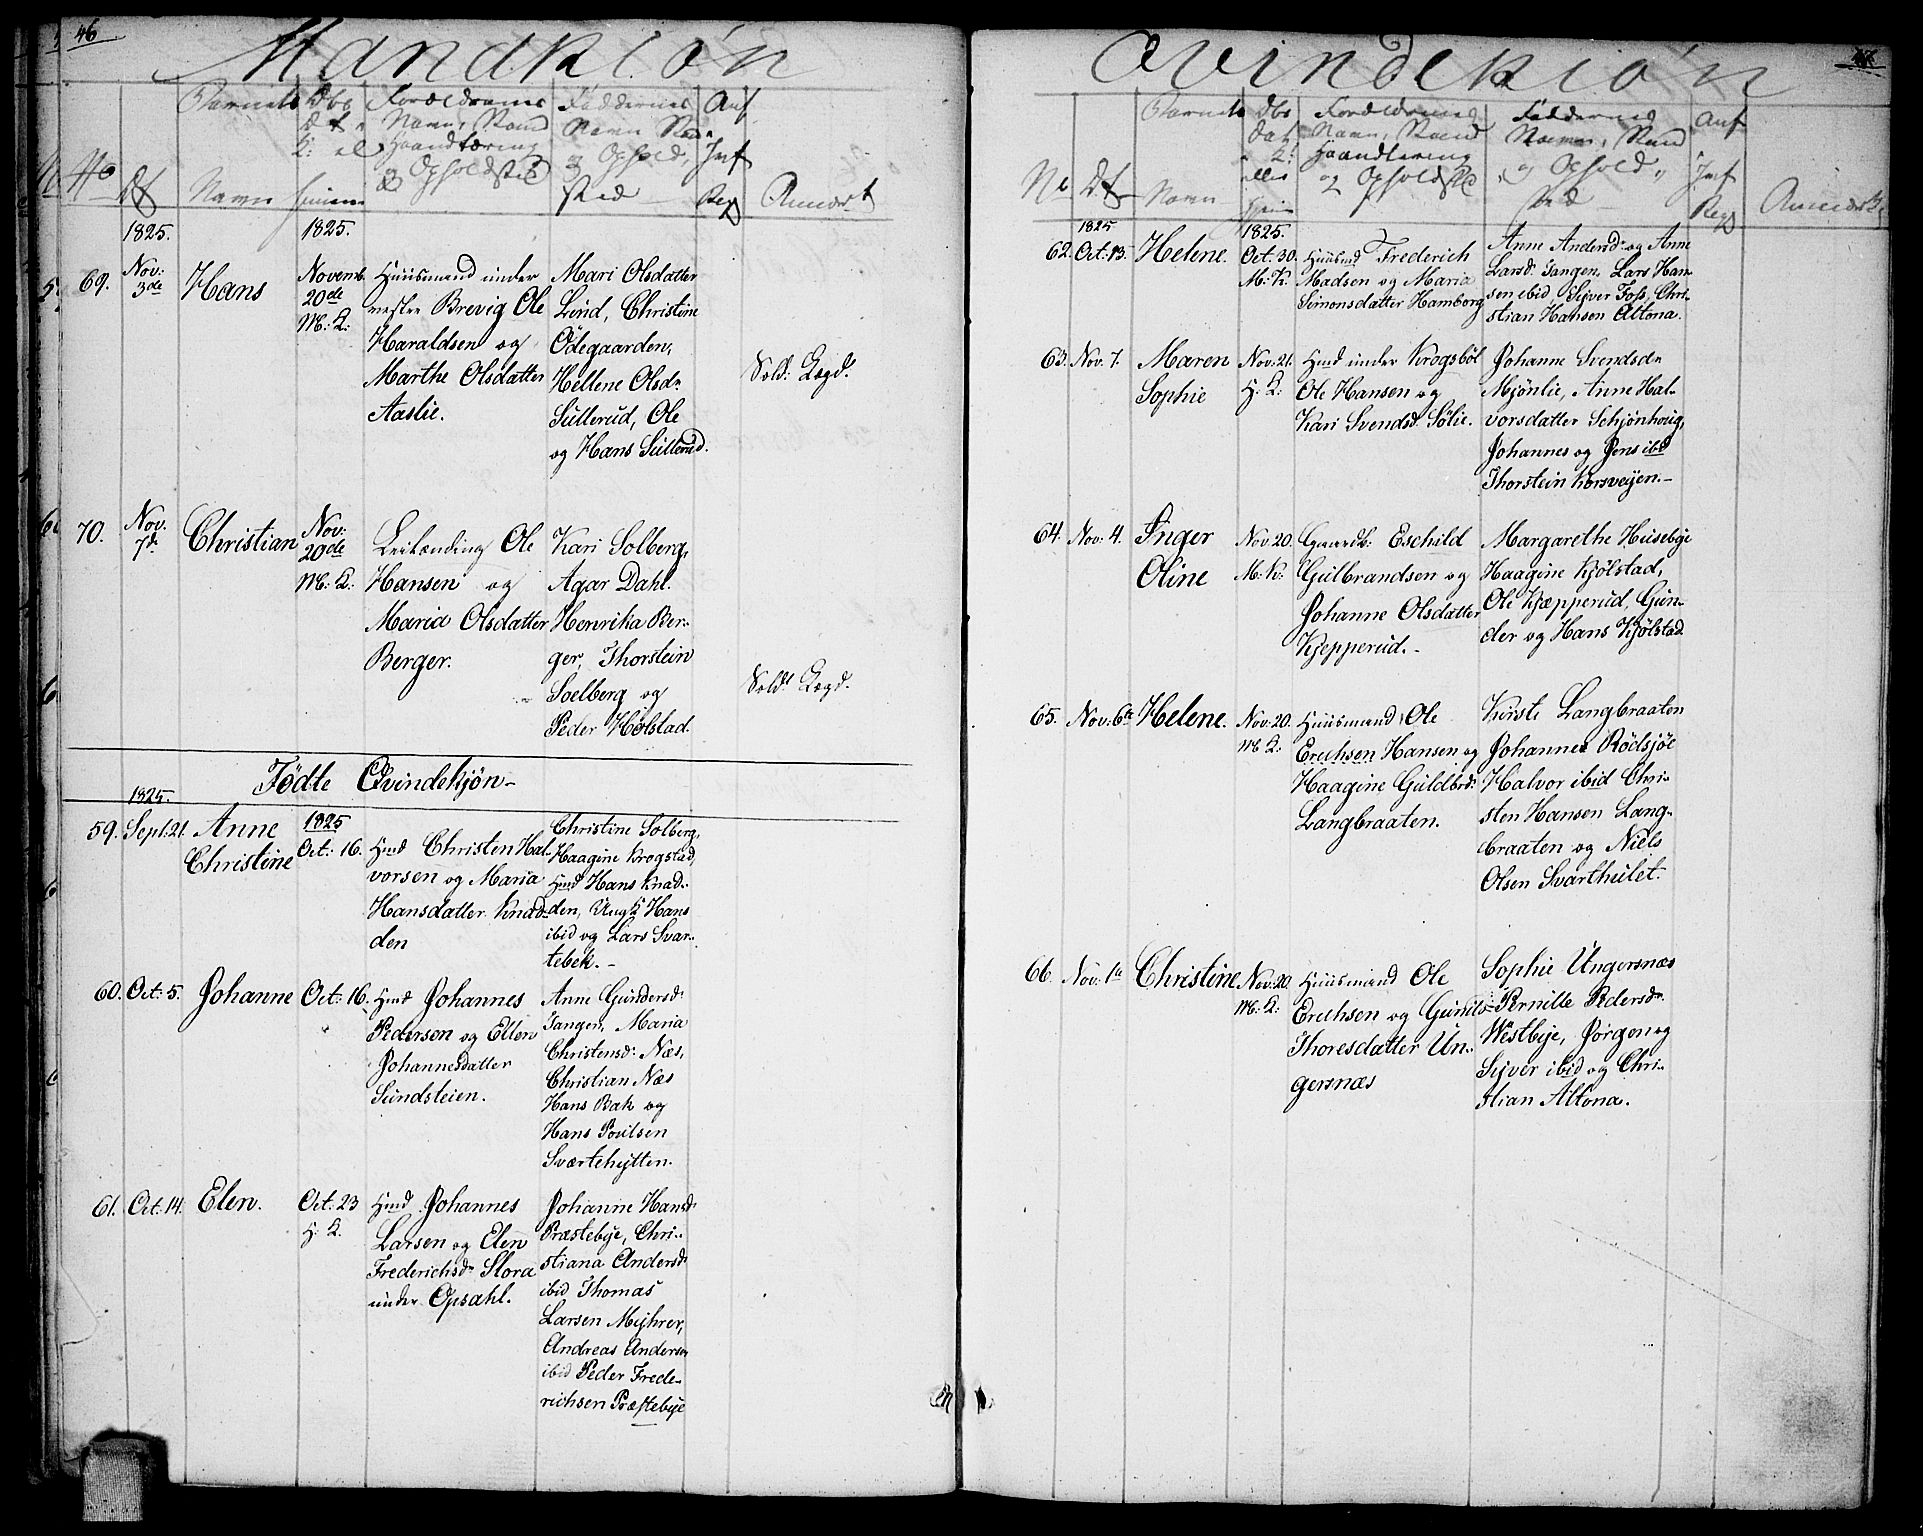 46
Mandkiøn
Barnets
Dbs
Dat
Forældrenes
Navn, Stand
Haandtæring
og Opholdsted
Faddernes
Navn Stand
og Ophold,
sted
Anf
Jnf
Reg
No
Df
Navn
Anmærk
1825.
1825.
69.
Nov:
3de
Hans
Novemb.
20de
M: K:
Huusmand under
nestre Brevig Ole
Haraldsen og
Marthe Olsdatter
Aaslie.
Mari Olsdatter
Lind, Christine
Ödegaarden,
Hellene Olsdr
Sutterud, Ole
og Hans Sutterud.
Sold: Lægd.
70.
Nov.
7de
Christian
Nov:
20de
M: K:
Leilænding Ole
Hansen og
Maria Olsdatter
Berger.
Kari Solberg,
Agar Dahl.
Henrika Ber-
ger, Thorstein
Soelberg og
Peder Hølstad.
Sold: Lægd.
Födte Qvindekjøn-
1825.
59. Sept: 21.
Anne
Christine
1825
Oct: 16.
Hmd Christen Hal-
vorsen og Maria
Hansdatter Knad-
den
Christine Solberg,
Haagine Krogstad,
Hmd Hans Knad-
den, Ungk Hans
ibid og Lars Svar-
tebek.-
60. Oct: 5.
Johanne
Oct: 16.
Hmd Johannes
Pedersen og Ellen
Johannesdatter
Sundsteien.
Anne Gundersd:
Tangen, Maria
Christensd: Næs,
Christian Næs
Hans Bak og
Hans Poulsen
Sværtehytten.
61. Oct: 14.
Elen.
Oct: 23
H: K.
Hmd Johannes
Larsen og Elen
Frederichsdr Slora
under Opsahl.
Johanne Hansd:
Præstebye, Chri-
stiana Andersdr
ibid Thomas
Larsen Myhrer,
Andreas Andersen
ibid Peder Frede-
richsen Præstebye
Qvindekiøn
Barnets
Dbs
Dat
Forældrenes
Navn, Stand
Haandtæring
og Opholdsted
Faddernes
Navn, Stand
og Ophold,
sted
Anf
Jnf
Reg
No
Df
Navn
Anmærk
1825
1825.
62. Oct: 13.
Helene.
Oct: 30.
M: K.
Huusmd Frederich
Madsen og Maria
Simonsdatter Hamborg
Anne Andersdr og Anne
Larsd: Tangen, Lars Han-
sen ibid, Syver Foss, Chri-
stian Hansen Altona.
63. Nov. 7.
Maren
Sophie
Nov: 21.
H: K:
Hmd under Krogsböl
Ole Hansen og
Kari Svendsd: Sölie.
Johanne Svendsdr
Mjönlie, Anne Hal-
vorsdatter Schjönhoug,
Johannes og Jens ibd
Thorstein Korsveijen.-
64. Nov: 4.
Inger
Oline
Nov: 20.
M: K:
Gaardb: Eschild
Gulbrandsen og
Johanne Olsdatter
Kjepperud.-
Margarethe Husebye
Haagine Kjølstad,
Ole Kjæpperud, Gun-
der og Hans Kjølstad
65. Nov: 6te
Helene.
Nov: 20.
M: K:
Huusmand Ole
Erichsen Hansen og
Haagine Guldbrd:
Langbraaten.
Kirste Langbraaten
Johannes Rödsjöe
Halvor ibid Chri-
sten Hansen Lang-
braaten og Niels
Olsen Svarthulet.
66. Nov: 1te
Christine
Nov: 20.
M: K:
Huusmand Ole
Erichsen og Gunild
Thoresdatter Un-
gersnæs
Sophie Ungersnæs
Pernille Pedersdr
Westbye, Jörgen og
Syver ibid og Chri-
stian Altona.